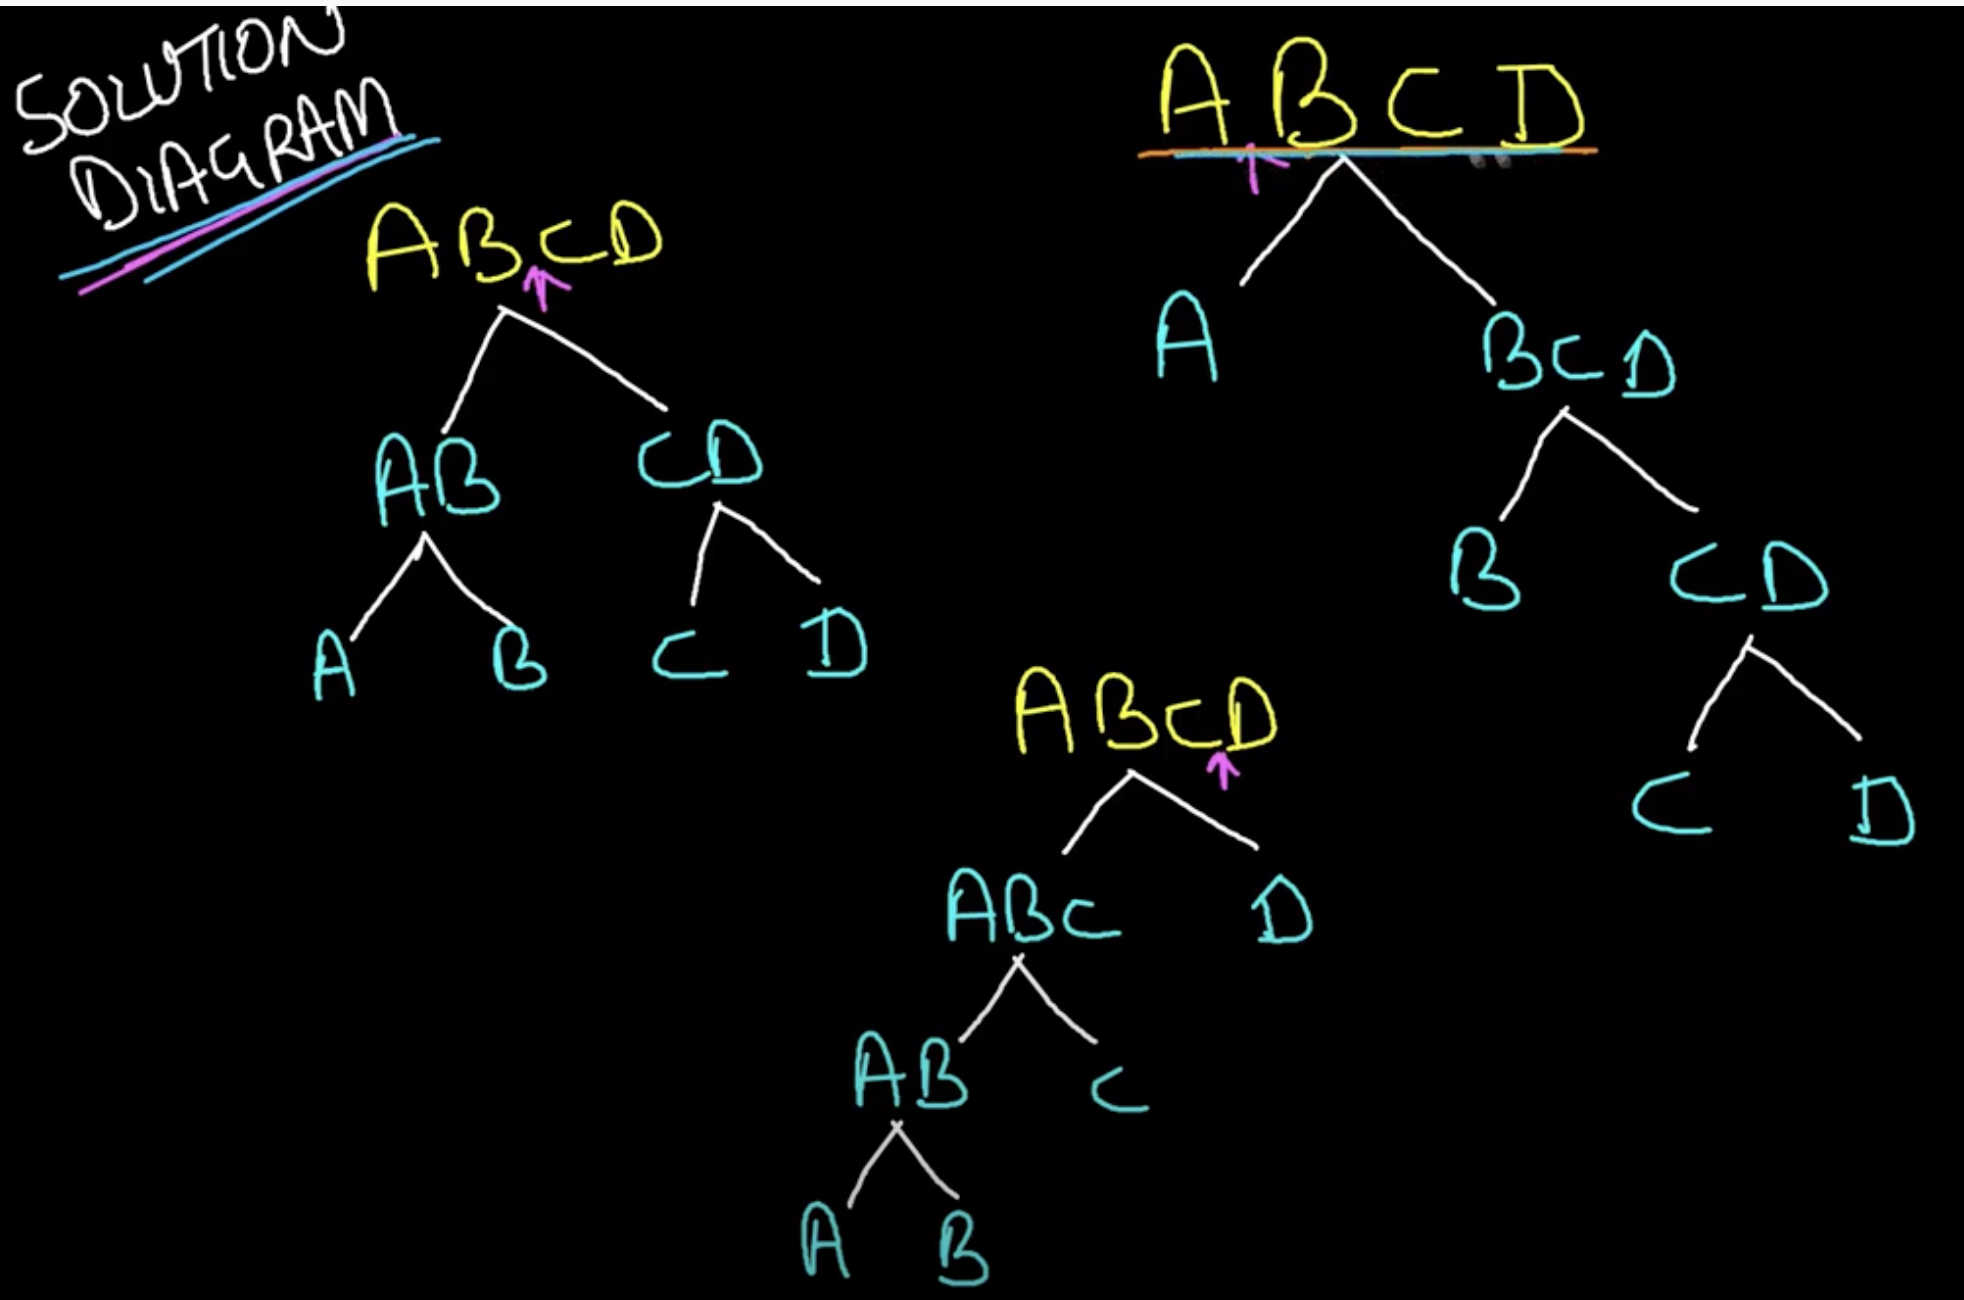 SOLUTION
DIAGRAM
ABCD
AB CD
A B C D
ABCD
A BCD
B CD
C D
ABCD
ABC D
AB C
A B